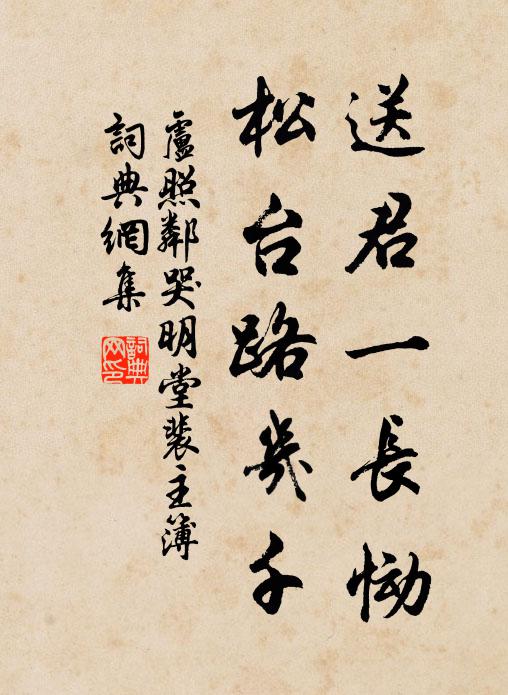 送君一長慟
松台路幾千
盧照鄰哭明堂裴主簿
詞典網集
詞典
网印